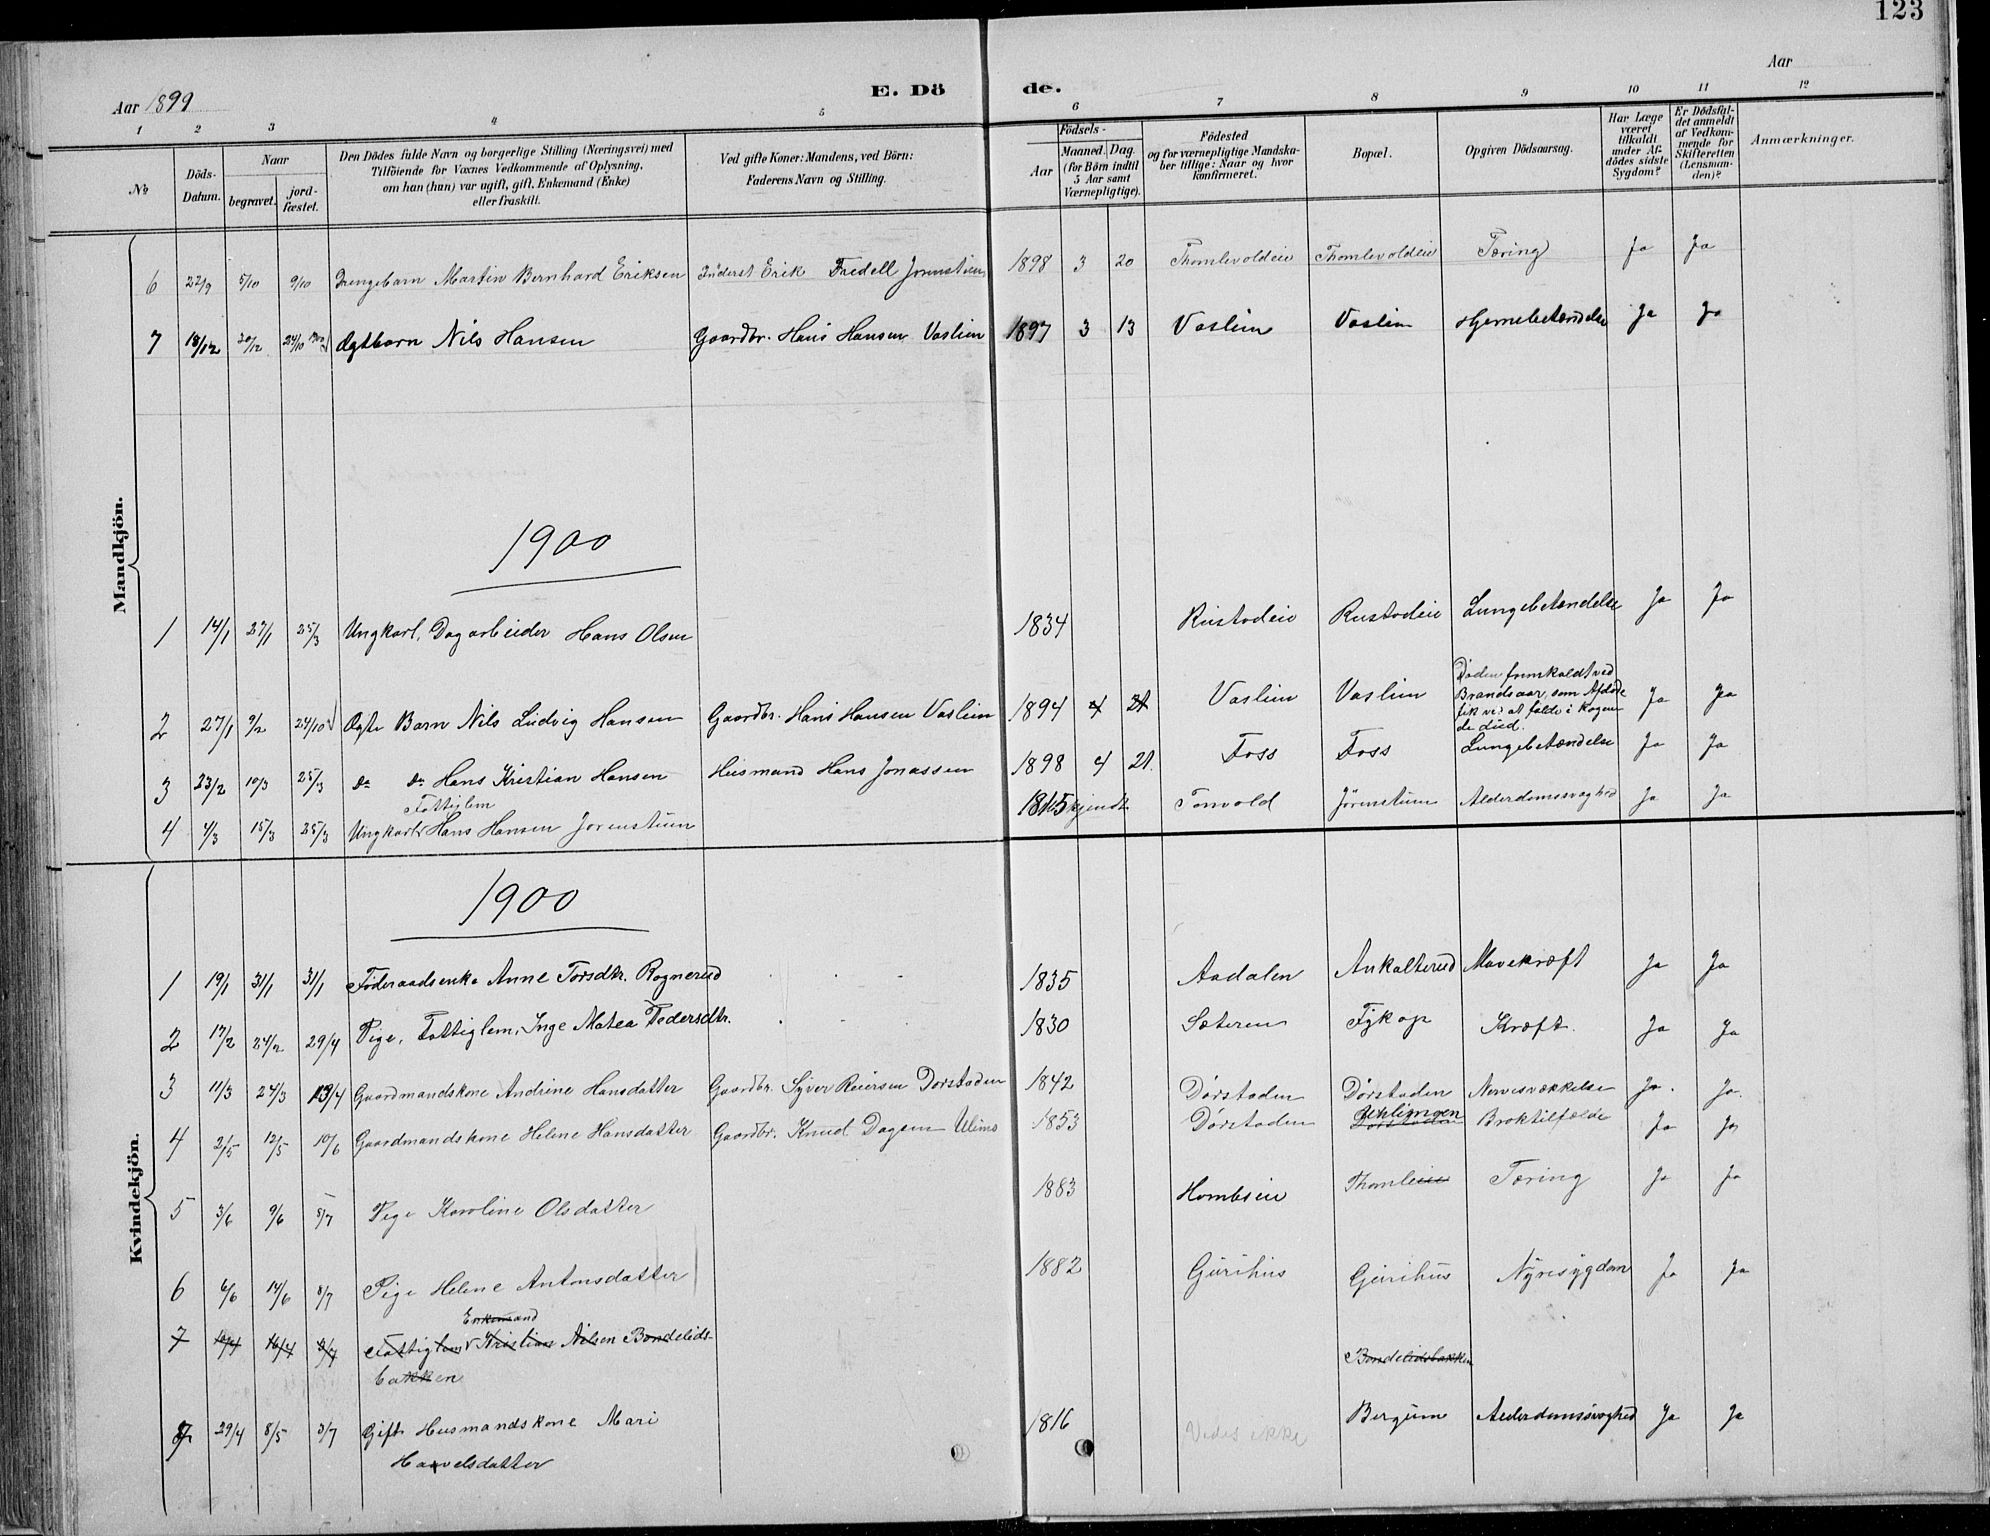 123
Aar 1899 E. Dö de. Aar
1 2 3 4 5 6 7 8 9 10 11 12
No
Döds-Datum.
Naar
begravet.
jord-fæstet.
Den Dödes fulde Navn og borgerlige Stilling (Næringsvei) med
Tilföiende for Voxnes Vedkommende af Oplysning,
om han (hun) var ugift, gift, Enkemand (Enke)
eller fraskilt.
Ved gifte Koner: Mandens, ved Börn:
Faderens Navn og Stilling.
Födsels-
Aar
Maaned. Dag.
(for Börn indtil
5 Aar samt
Værnepligtige).
Födested
og for værnepligtige Mandska-
ber tillige: Naar og hvor
konfirmeret.
Bopæl.
Opgiven Dödsaarsag.
Har Læge
været
tilkaldt
under Af-
dödes sidste
Sygdom?
Er Dödsfal-
det anmeldt
af Vedkom-
mende for
Skifteretten
(Lensman-
den)?
Anmærkninger.
Mandkjön.
6 22/9 5/10 9/10 Drengebarn Martin Bernhard Eriksen Inderst Erik Fredell Jorenstuen 1898 3 20 Thomlevoldeie Thomlevoldeie Tæring Ja Ja
7 18/12 30/12 24/10 1900 Ægtbarn Nils Hansen Gaardbr. Hans Hansen Vaslien 1897 3 13 Vaslien Vaslien Hjernebetændelse Ja Ja
1900
1 14/1 27/1 25/3 Ungkarl, Dagarbeider Hans Olsen 1834 Rustadeie Rustadeie Lungebetændelse Ja Ja
2 27/1 9/2 24/10 Ægte Barn Nils Ludvig Hansen Gaardbr. Hans Hansen Vaslien 1894 4 21 Vaslien Vaslien Døden fremkaldt ved
Brandsaar, som Afdøde
fik ved at falde i kogen
de Lud. Ja Ja
3 23/2 10/3 25/3 do do Hans Kristian Hansen Husmand Hans Jonassen 1898 4 21. Foss Foss Lungebetændelse Ja Ja
Fattiglem
4 4/3 15/3 25/3 Ungkarl Hans Hansen Jorenstuen 1815 Tonvold Jörenstuen Alderdomssvaghed Ja Ja
Kvindekjön.
1900
1 19/1 31/1 31/1 Föderaadsenke Anne Torsdtr. Rognerud 1835 Aadalen Ankalterud Mavekræft Ja Ja
2 17/2 24/2 29/4 Pige, Fattiglem, Inge Matea Pedersdtr. 1830 Sæteren Fykop Kræft. Ja Ja
3 11/3 24/3 13/4 Gaardmandskone Andrine Hansdatter Gaardbr. Syver Reiersen Dørstaden 1842 Dørstaden Dørstaden Nervesvækkelse Ja. Ja.
4 2/5 12/5 10/6 Gaardmandskone Helene Hansdatter Gaardbr. Knud Dagsen 1853 Dørstaden Dørstaden Broktilfælde Ja Ja
5 3/6 9/6 8/7 Pige Karoline Olsdatter 1883 Thomleeie Tæring Ja Ja
6 6/6 14/6 8/7 Pige Helene Antonsdatter 1882 Gurihus Gurihus Nyresygdom Ja Ja
Enkemand
7 16/4 8/7 Fattiglem Kristian Nilsen Bondelids-
bakken Bondelidsbakken
7 29/4 8/5 3/7 Gift Husmandskone Mari 1816 Vides ikke Bergum Alderdomssvaghed Ja Ja
Haavelsdatter